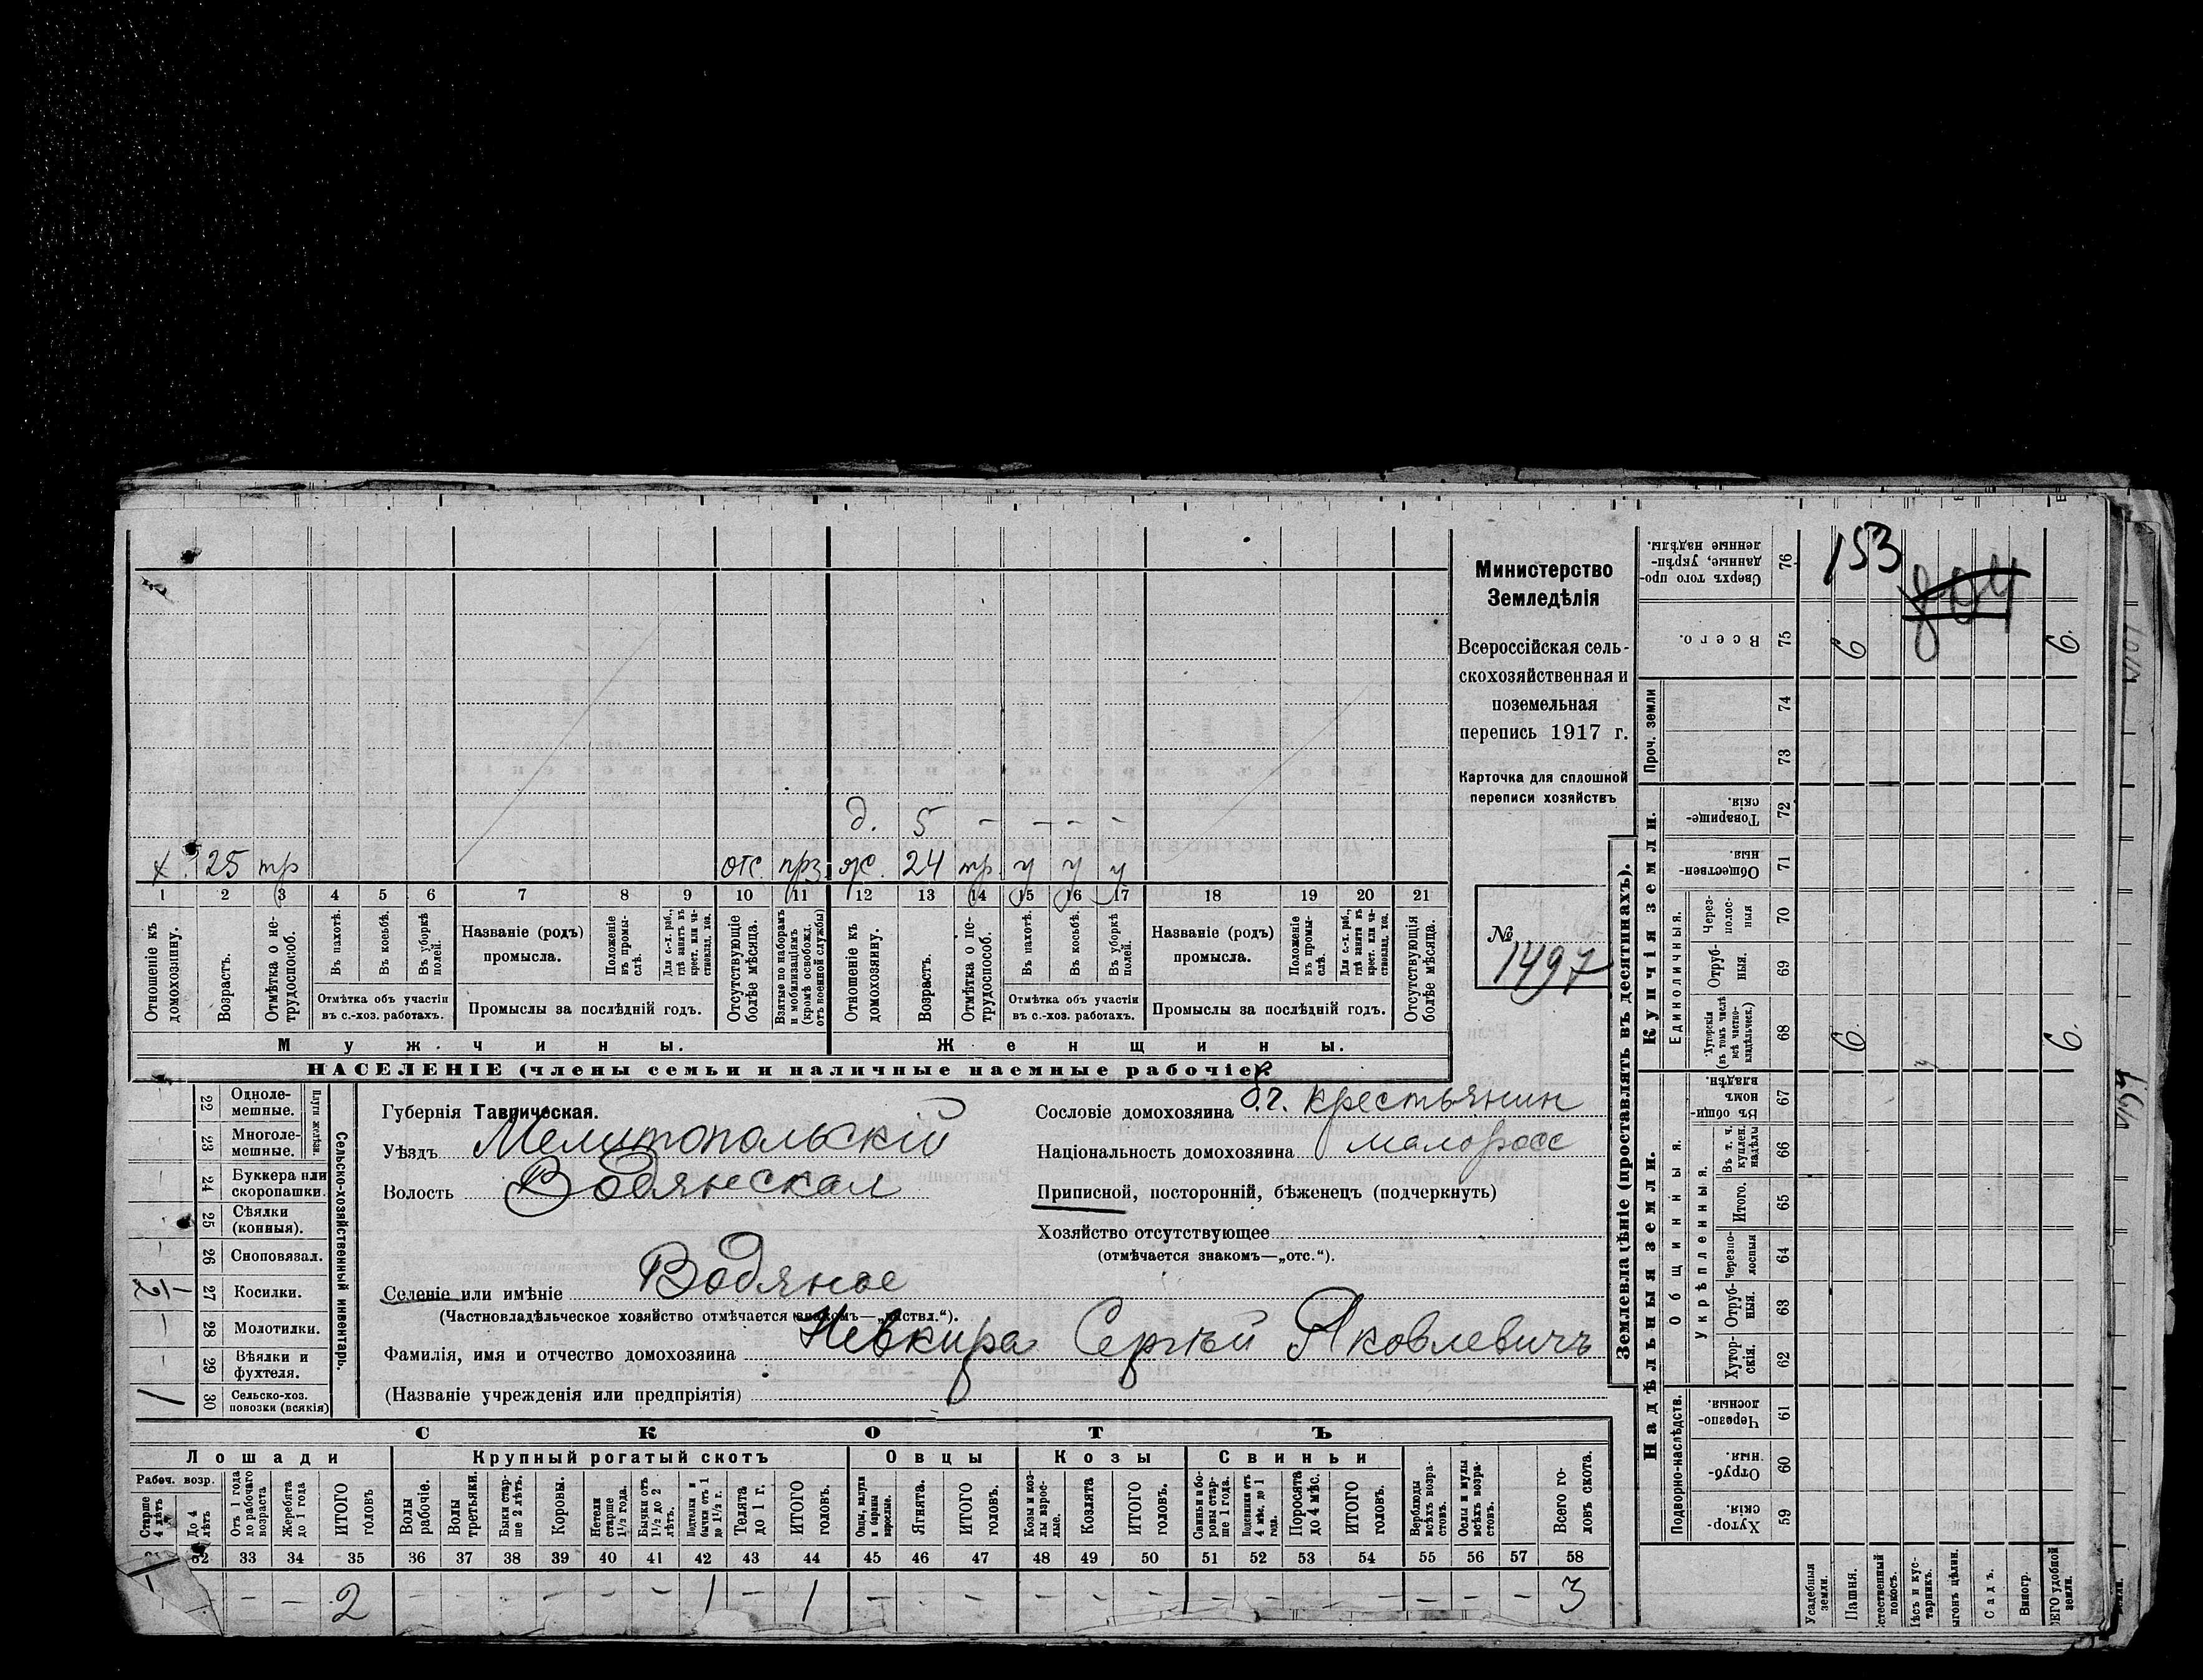 153
804
Министерство
Земледѣлія
Всероссійская сель-
скохозяйственная и
поземельная
перепись 1917 г.
Карточка для сплошной
переписи хозяйствъ
№
1497
д. 5 – – – –
х. 25 тр отс. прз. ж. 24 тр у у у
1 2 3 4 5 6 7 8 9 10 11 12 13 14 15 16 17 18 19 20 21
Отношеніе къ домохозяину.
Возрастъ.
Отмѣтка о не-трудоспособ.
Въ пахотѣ.
Въ косьбѣ.
Въ уборкѣ полей.
Отмѣтка объ участіи
въ с.-хоз. работахъ.
Названіе (родъ)
промысла.
Положеніе въ промы-слѣ.
Для с.-х. раб., гдѣ занятъ въ крест. или ча-ствовлад. хоз.
Промыслы за послѣдній годъ.
Отсутствующіе болѣе мѣсяца.
Взятые по наборамъ и мобилизаціямъ (кромѣ освобожд. отъ военной службы)
Отношеніе къ домохозяину.
Возрастъ.
Отмѣтка о не-трудоспособ.
Въ пахотѣ.
Въ косьбѣ.
Въ уборкѣ полей.
Отмѣтка объ участіи
въ с.-хоз. работахъ.
Названіе (родъ)
промысла.
Положеніе въ промы-слѣ.
Для с.-х. раб., гдѣ занятъ въ крест. или ча-ствовлад. хоз.
Промыслы за послѣдній годъ.
Отсутствующія болѣе мѣсяца.
Мужчины. Женщины.
НАСЕЛЕНІЕ (члены семьи и наличные наемные рабочіе).
Сельско-хозяйственный инвентарь.
Плуги желѣзн.
22 Одноле-мешные. –
23 Многоле-мешные. –
24 Буккера или скоропашки. –
25 Сѣялки (конныя). –
26 Сноповязал. –
27 Косилки. 1/2
28 Молотилки. –
29 Вѣялки и фухтеля. –
30 Сельско-хоз. повозки (всякія) 1
Губернія Таврическая.
Уѣздъ Мелитопольскій
Волость Водянская
Селеніе или имѣніе Водяное
(Частновладѣльческое хозяйство отмѣчается знакомъ—„частвл.“).
Фамилія, имя и отчество домохозяина Невкира Сергѣй Яковлевичъ
(Названіе учрежденія или предпріятія)
Сословіе домохозяина крестьянин
Національность домохозяина малоросс
Приписной, посторонній, бѣженецъ (подчеркнуть)
Хозяйство отсутствующее
(отмѣчается знакомъ—„отс.“).
СКОТЪ
Лошади Крупный рогатый скотъ Овцы Козы Свиньи
Рабоч. возр.
Старше 4 лѣтъ
До 4 лѣтъ
Отъ 1 года до рабочаго возраста
Жеребята до 1 года
ИТОГО головъ
Волы рабочіе.
Волы третьяки.
Быки стар-ше 2 лѣтъ.
Коровы.
Нетели старше 1½ года.
Бычки отъ 1½ до 2 лѣтъ.
Подтелки и бычки отъ 1 до 1½ г.
Телята до 1 г.
ИТОГО головъ.
Овцы, валухи и бараны взрослые.
Ягнята.
ИТОГО головъ.
Козы и коз-лы взрос-лые.
Козлята
ИТОГО головъ.
Свиньи и бо-ровы стар-ше 1 года.
Подсвинки отъ 4 мѣс. до 1 года.
Поросята до 4 мѣс.
ИТОГО головъ.
Верблюды всѣхъ возра-стовъ.
Ослы и мулы всѣхъ возра-стовъ.
Всего го-ловъ скота.
32 33 34 35 36 37 38 39 40 41 42 43 44 45 46 47 48 49 50 51 52 53 54 55 56 57 58
– – – 2 – – – – – – 1 – 1 – – – – – – – – – – – – – 3
Землевладѣніе (проставлять въ десятинахъ).
Надѣльныя земли. Купчія земли. Проч. земли
Подворно-наслѣдств.
Общинныя.
Укрѣпленныя.
Единоличныя.
59 Хутор-скія.
60 Отруб-ныя.
61 Черезпо-лосныя.
62 Хутор-скія.
63 Отруб-ныя.
64 Черезпо-лосныя
65 Итого.
66 Въ т. ч. куплен. надѣлы
67 Въ общи-номъ владѣн.
68 Хуторскія (въ томъ числѣ всѣ частно-владѣльческ.) 6. 6.
69 Отруб-ныя.
70 Через-полос-ныя
71 Обществен-ныя
72 Товарище-скія.
73
74
75 Всего. 6 6.
76 Сверхъ того про-данные, укрѣп-ленные надѣлы.
Усадебныя земли.
Пашня.
Садъ.
Виногр.